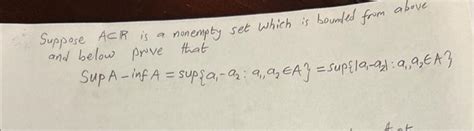 Suppose A⊂R is a nonempty set which is bounded from above
and below prove that
Sup A - inf A = sup{a₁-a₂: a₁,a₂∈A} = sup{|a₁-a₂|: a₁,a₂∈A}